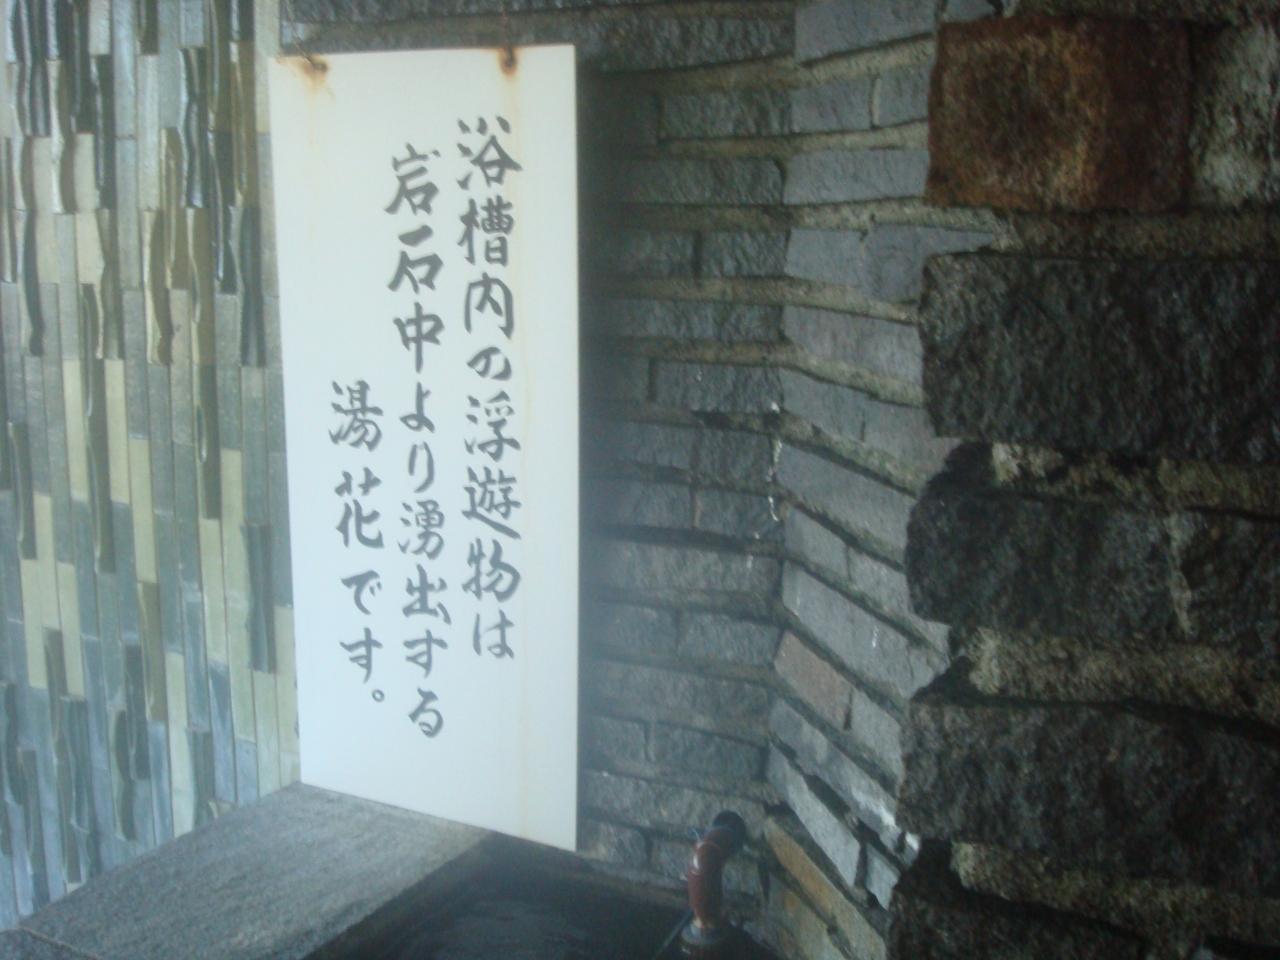 浴槽内の浮遊物は
岩石中より湧出する
湯花です。